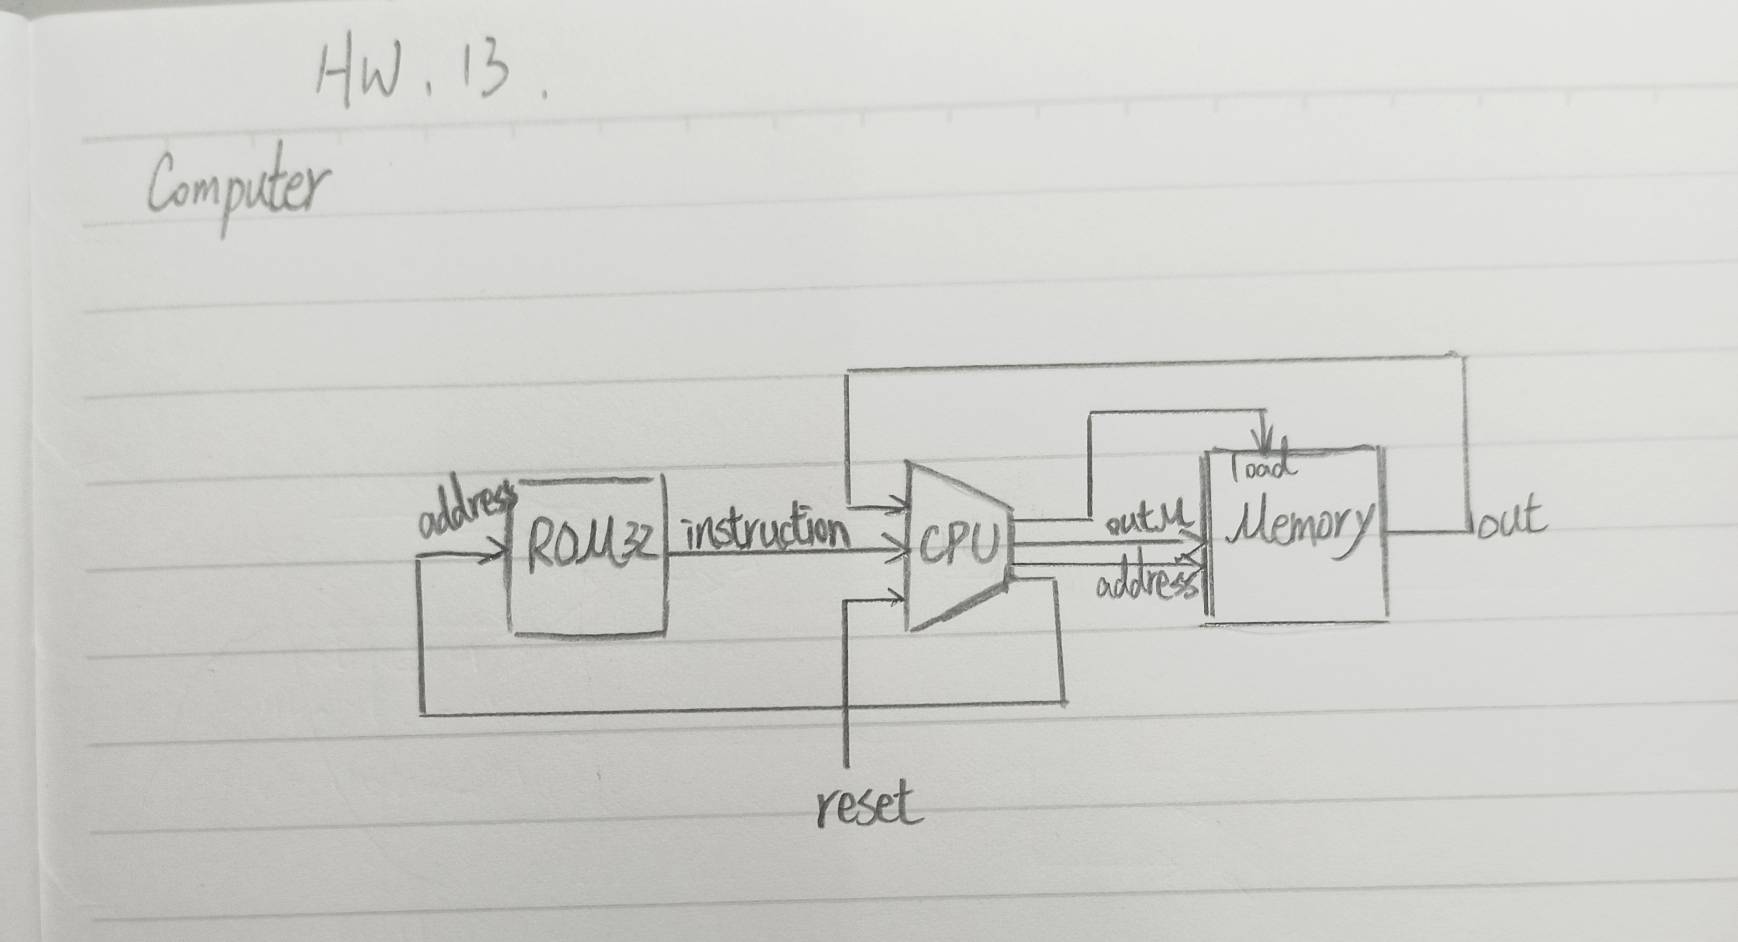 HW. 13.
Computer
load
address
ROM32
instruction
CPU
outM
address
Memory
out
reset